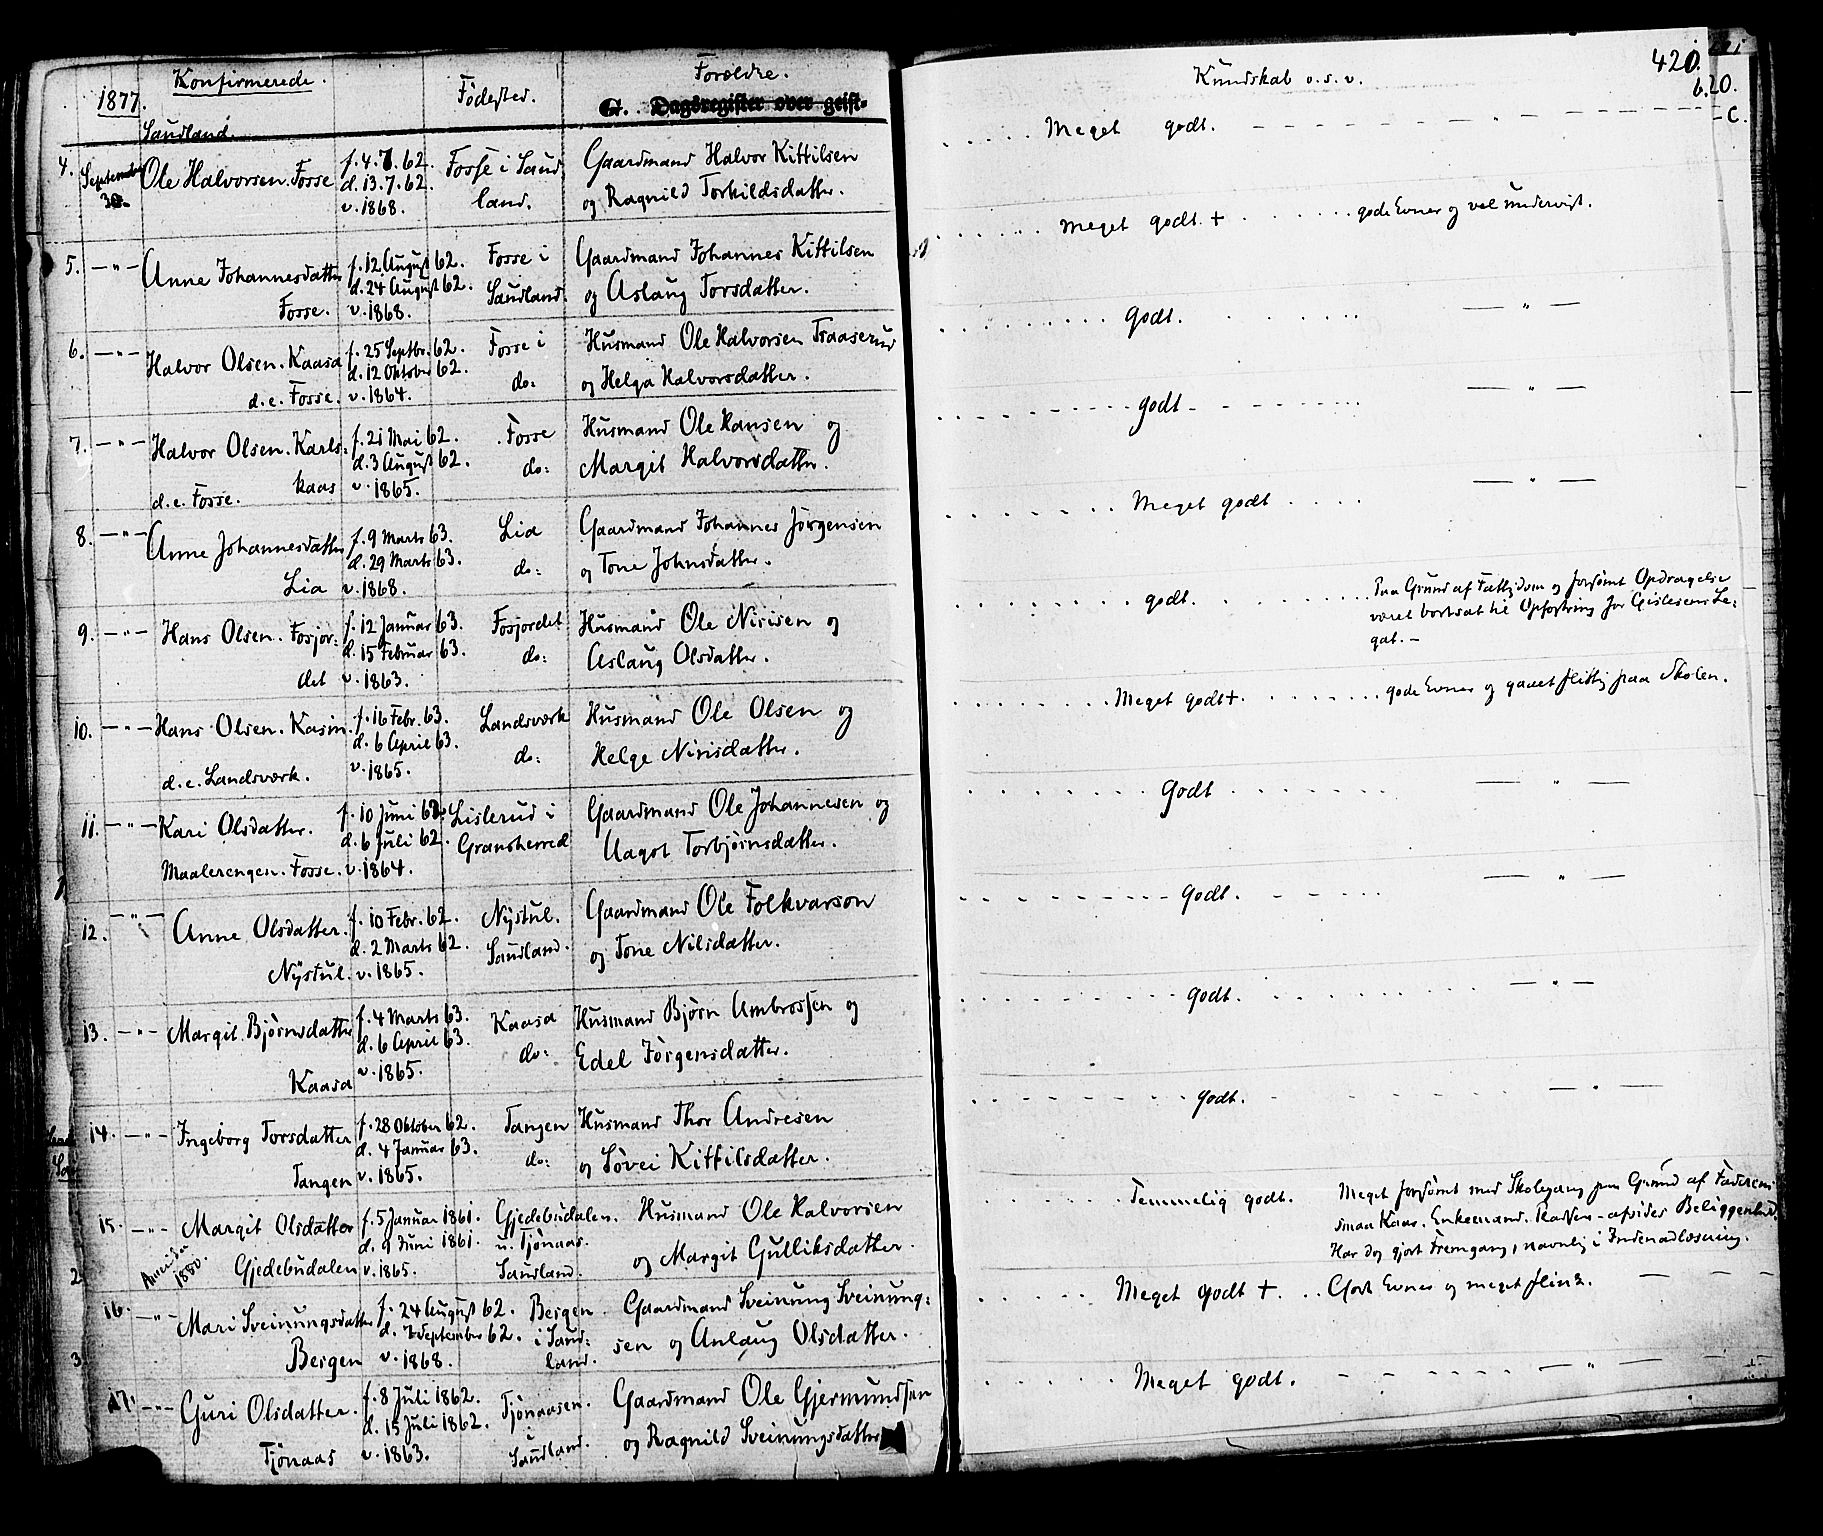 Konfirmerede.
1877.
Födested.
Forældre.
G. Dagsregister over geist-
Saudland.
4. September 30. Ole Halvorsen. Fosse f. 4.7.62. Fosse i Saud Gaardmand Halvor Kittilsen
d. 13.7.62. land. og Ragnild Torkildsdatter.
v. 1868.
5. —"— Anne Johannesdatter f. 12 August 62. Fosse i Gaardmand Johannes Kittilsen
d. 24 August 62. Saudland. og Aslaug Torsdatter.
Fosse. v. 1868.
6. —"— Halvor Olsen. Kaasa f. 25 Septbr. 62. Fosse i Husmand Ole Halvorsen Traaserud
d. 12 Oktober 62. do: og Helga Halvorsdatter.
d.e. Fosse. v. 1864.
7. —"— Halvor Olsen. Karls- f. 21 Mai 62. Fosse Husmand Ole Hansen og
d. 3 August 62. do: Margit Halvorsdatter.
d.e. Fosse. kaas v. 1865.
8. —"— Anne Johannesdatter f. 9 Marts 63. Lia Gaardmand Johannes Jörgensen
d. 29 Marts 63. do: og Tone Johnsdatter.
Lia v. 1868.
9. —"— Hans Olsen. Fosjor- f. 12 Januar 63. Fosjordet Husmand Ole Nirisen og
d. 15 Februar 63. do: Aslaug Olsdatter.
det v. 1863.
10. —"— Hans Olsen. Kasin. f. 16 Febr. 63. Landsværk Husmand Ole Olsen og
d. 6 April 63. do: Helge Nirisdatter.
d.e. Landsværk. v. 1865.
11. —"— Kari Olsdatter. f. 10 Juni 62. Lislerud i Gaardmand Ole Johannesen og
d. 6 Juli 62. Gransherred Aagot Torbjörnsdatter.
Maalerengen. Fosse. v. 1864.
12. —"— Anne Olsdatter. f. 10 Febr. 62. Nystul. Gaardmand Ole Folkvarson
d. 2 Marts 62. Saudland. og Tone Nilsdatter.
Nystul. v. 1865.
13. —"— Margit Björnsdatter f. 4 Marts 63. Kaasa Husmand Björn Ambrossen og
d. 6 April 63. do: Edel Jörgensdatter.
Kaasa v. 1865.
14. —"— Ingeborg Torsdatter f. 28 Oktober 62. Tangen Husmand Thor Andresen
d. 4 Januar 63. do: og Sövei Kittilsdatter.
Tangen v. 1865.
15. —"— Margit Olsdatter f. 5 Januar 1861. Gjedebudalen. Husmand Ole Halvorsen
d. 9 Juni 1861. u. Tjönaas. og Margit Gulliksdatter.
1880. Gjedebudalen v. 1865. Saudland.
16. —"— Mari Sveinungsdatter f. 24 August 62. Bergen Gaardmand Sveinung Sveinung-
d. 7 September 62. i Saud- sen og Anlaug Olsdatter.
Bergen v. 1868. land.
17. —"— Guri Olsdatter. f. 8 Juli 1862. Tjönaasen. Gaardmand Ole Gjermundsen
d. 15 Juli 1862. i og Ragnild Sveinungsdatter
Tjönaas v. 1863. Saudland.
420.
Kundskab o.s.v.
b.20.
C.
Meget godt.
Meget godt. + gode Evner og vel undervist.
Godt. —"—
godt —"—
Meget godt —"—
godt. Paa Grund af Fattigdom og forsömt Opdragelse
været bortsat til Opfostring for Gislesens Le-
gat. —
Meget godt + gode Evner og gaaet flittig paa Skolen.
Godt —"—
Godt. —"—
godt. —"—
godt. —"—
Temmelig godt. Meget forsömt med Skolegang paa Grund af Faderens
smaa Kaar. Enkemand. Pladsen afsides Beliggenhed.
Har dog gjort Fremgang, navnlig i Indenadlæsning.
Meget godt +. Gode Evner og meget flink.
Meget godt. —"—